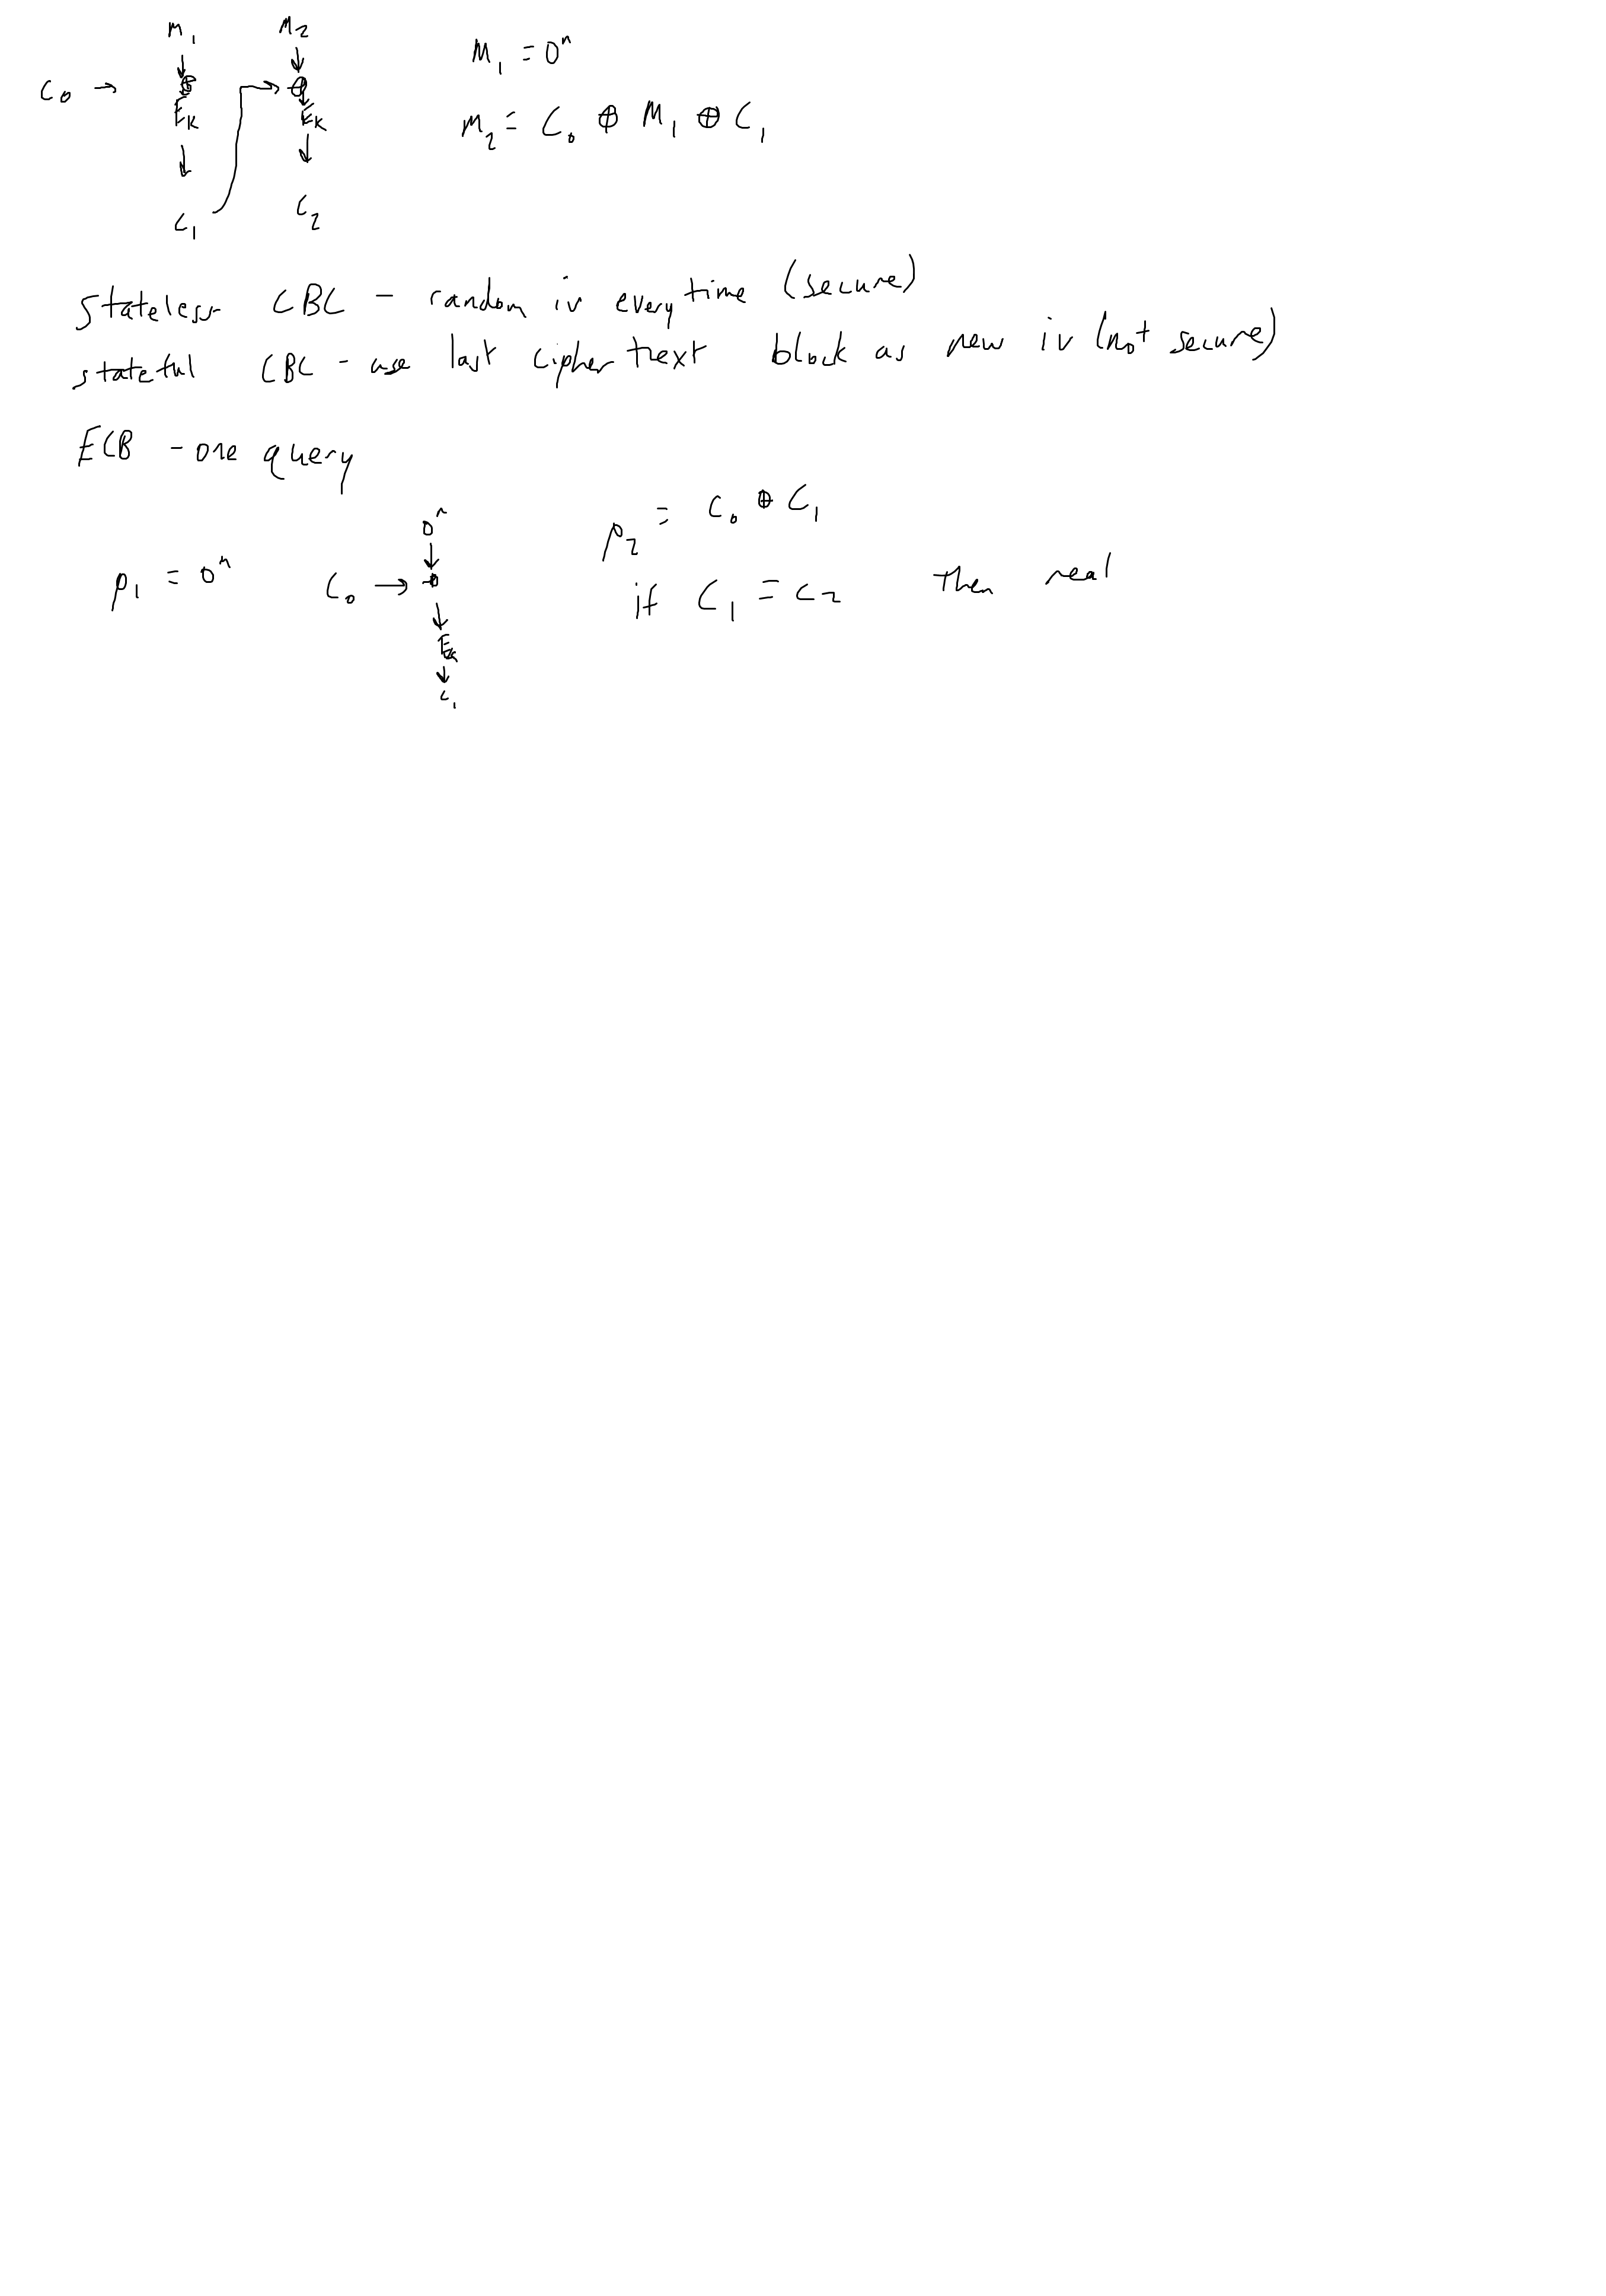 M₁ M₂
C₀ → ⊕ ⊕
E_K E_K
C₁ C₂
M₁ = 0ⁿ
M₂ = C₀ ⊕ M₁ ⊕ C₁
Stateless CBC - random iv every time (secure)
stateful CBC - use last cipher text block as new iv (not secure)
ECB - one query
P₁ = 0ⁿ
0ⁿ
C₀ → ⊕
E_K
C₁
P₂ = C₀ ⊕ C₁
if C₁ = C₂ then real